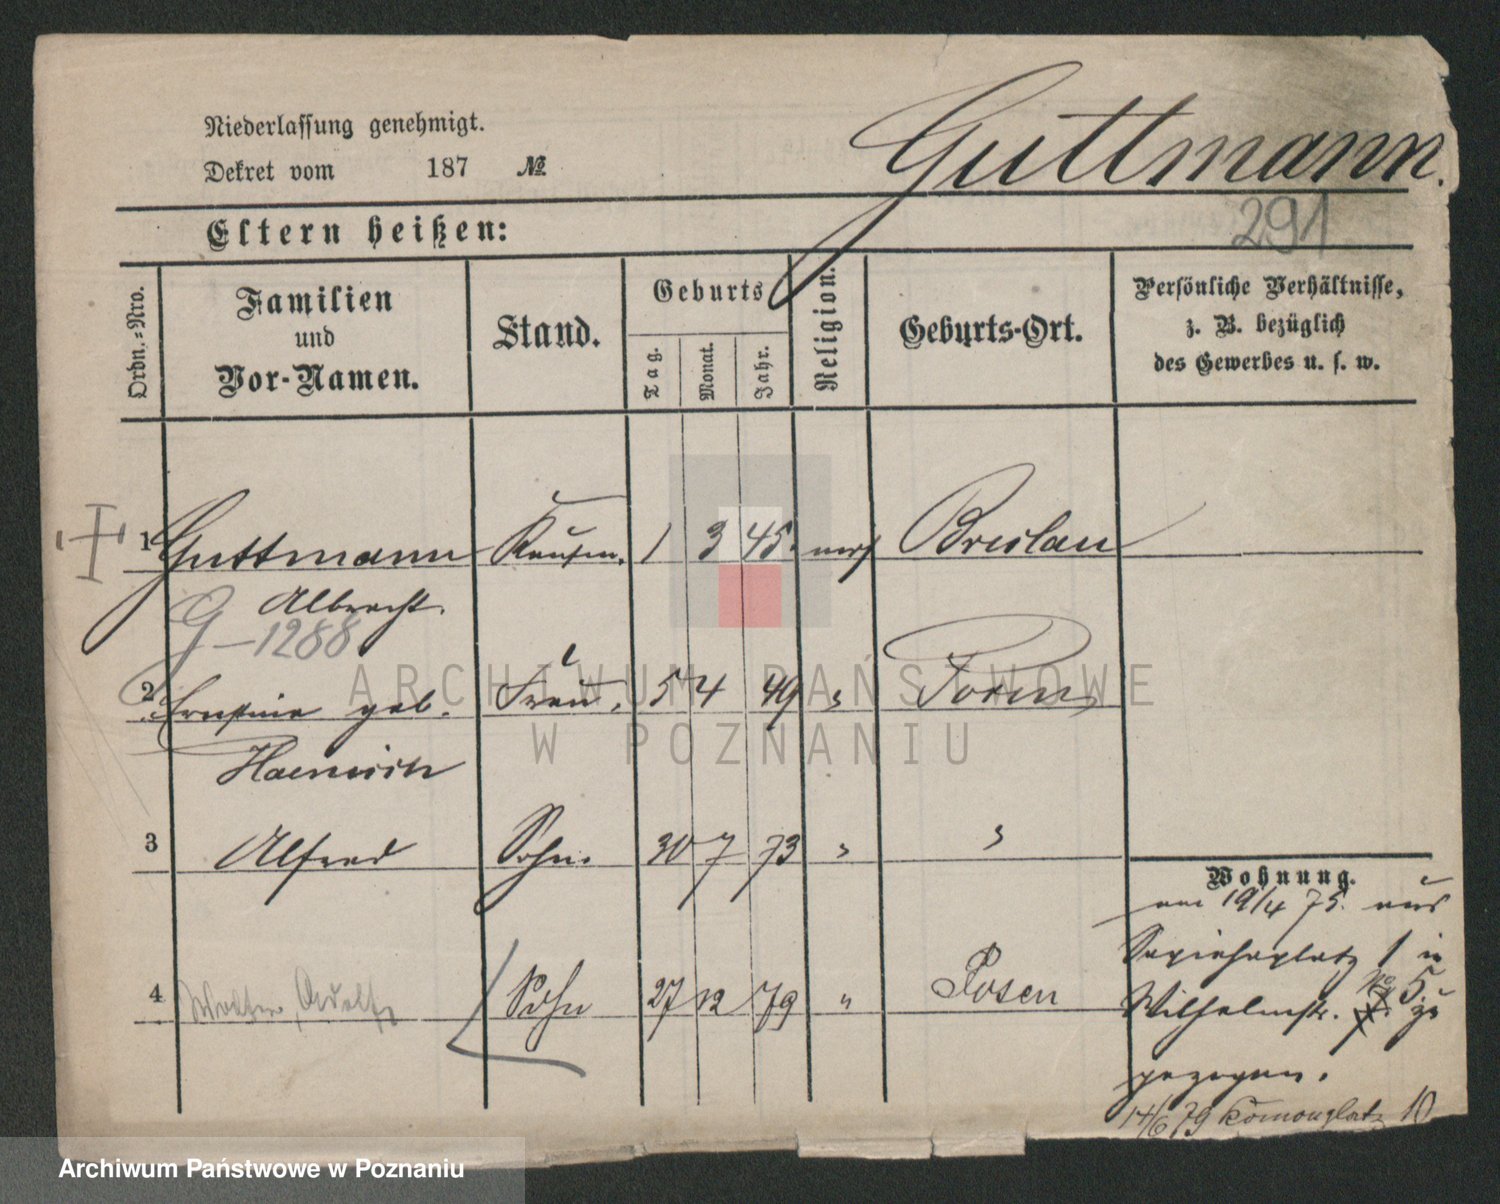 Niederlassung genehmigt.
Dekret vom 187 №
Guttmann.
291
Eltern heißen:
Ordn.-Nro.
Familien
und
Vor-Namen.
Stand.
Geburts
Tag.
Monat.
Jahr.
Religion.
Geburts-Ort.
Persönliche Verhältnisse,
z. B. bezüglich
des Gewerbes u. s. w.
1 Guttmann Kaufm. 1 3 45. mos Breslau
Albrecht.
G-1288
2 Ernestine geb. Frau. 5 4 49 " Posen
3 Alfred Sohn. 30 7 73 " "
Wohnung.
am 19/4 75. aus
Sapiehaplatz 1 in
4 Adolf Sohn 27 12 79 " Posen
Wilhelmstr. No 5 zu
gezogen.
14/6 79 10
ARCHIWUM PAŃSTWOWE
W POZNANIU
Archiwum Państwowe w Poznaniu